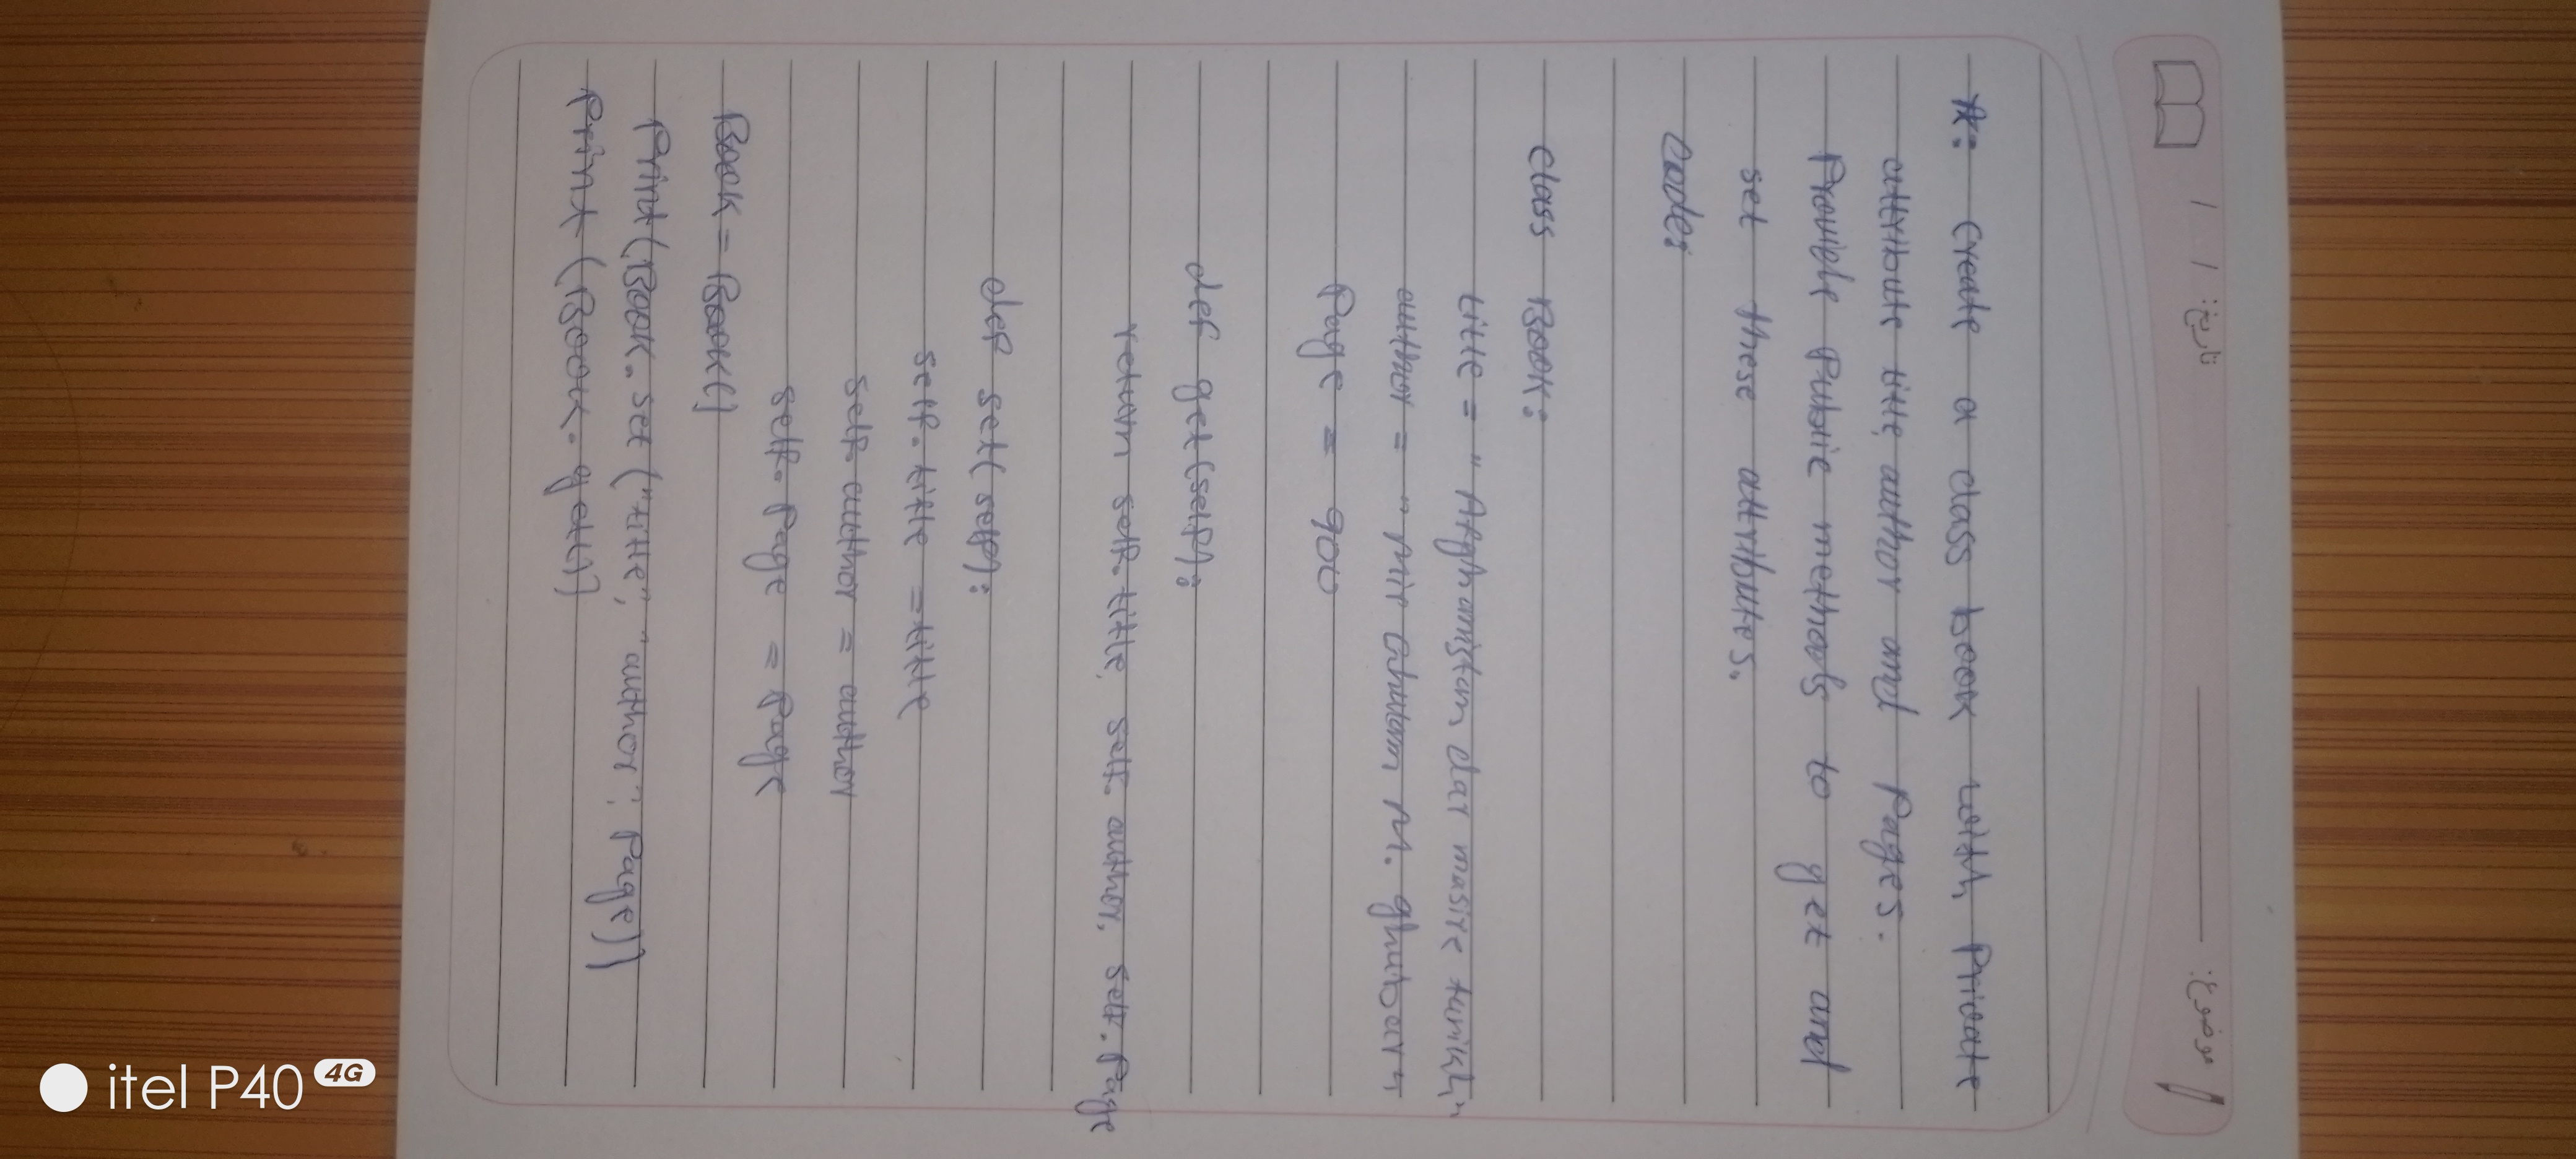 موضوع: تاریخ: / /
*: create a class book with Private
attribute title, author and Pages.
Provide Public methods to get and
set these attributes.
Code:
class Book:
title = "Afghanistan dar masire tarikh"
author = "Mir Ghulam M. ghubar"
Page = 900
def get(self):
return self.title, self.author, self.Page
def set(self):
self.title = title
self.author = author
self.Page = Page
Book = Book()
Print(Book.set("title", "author", Page))
Print(Book.get())
itel P40 4G